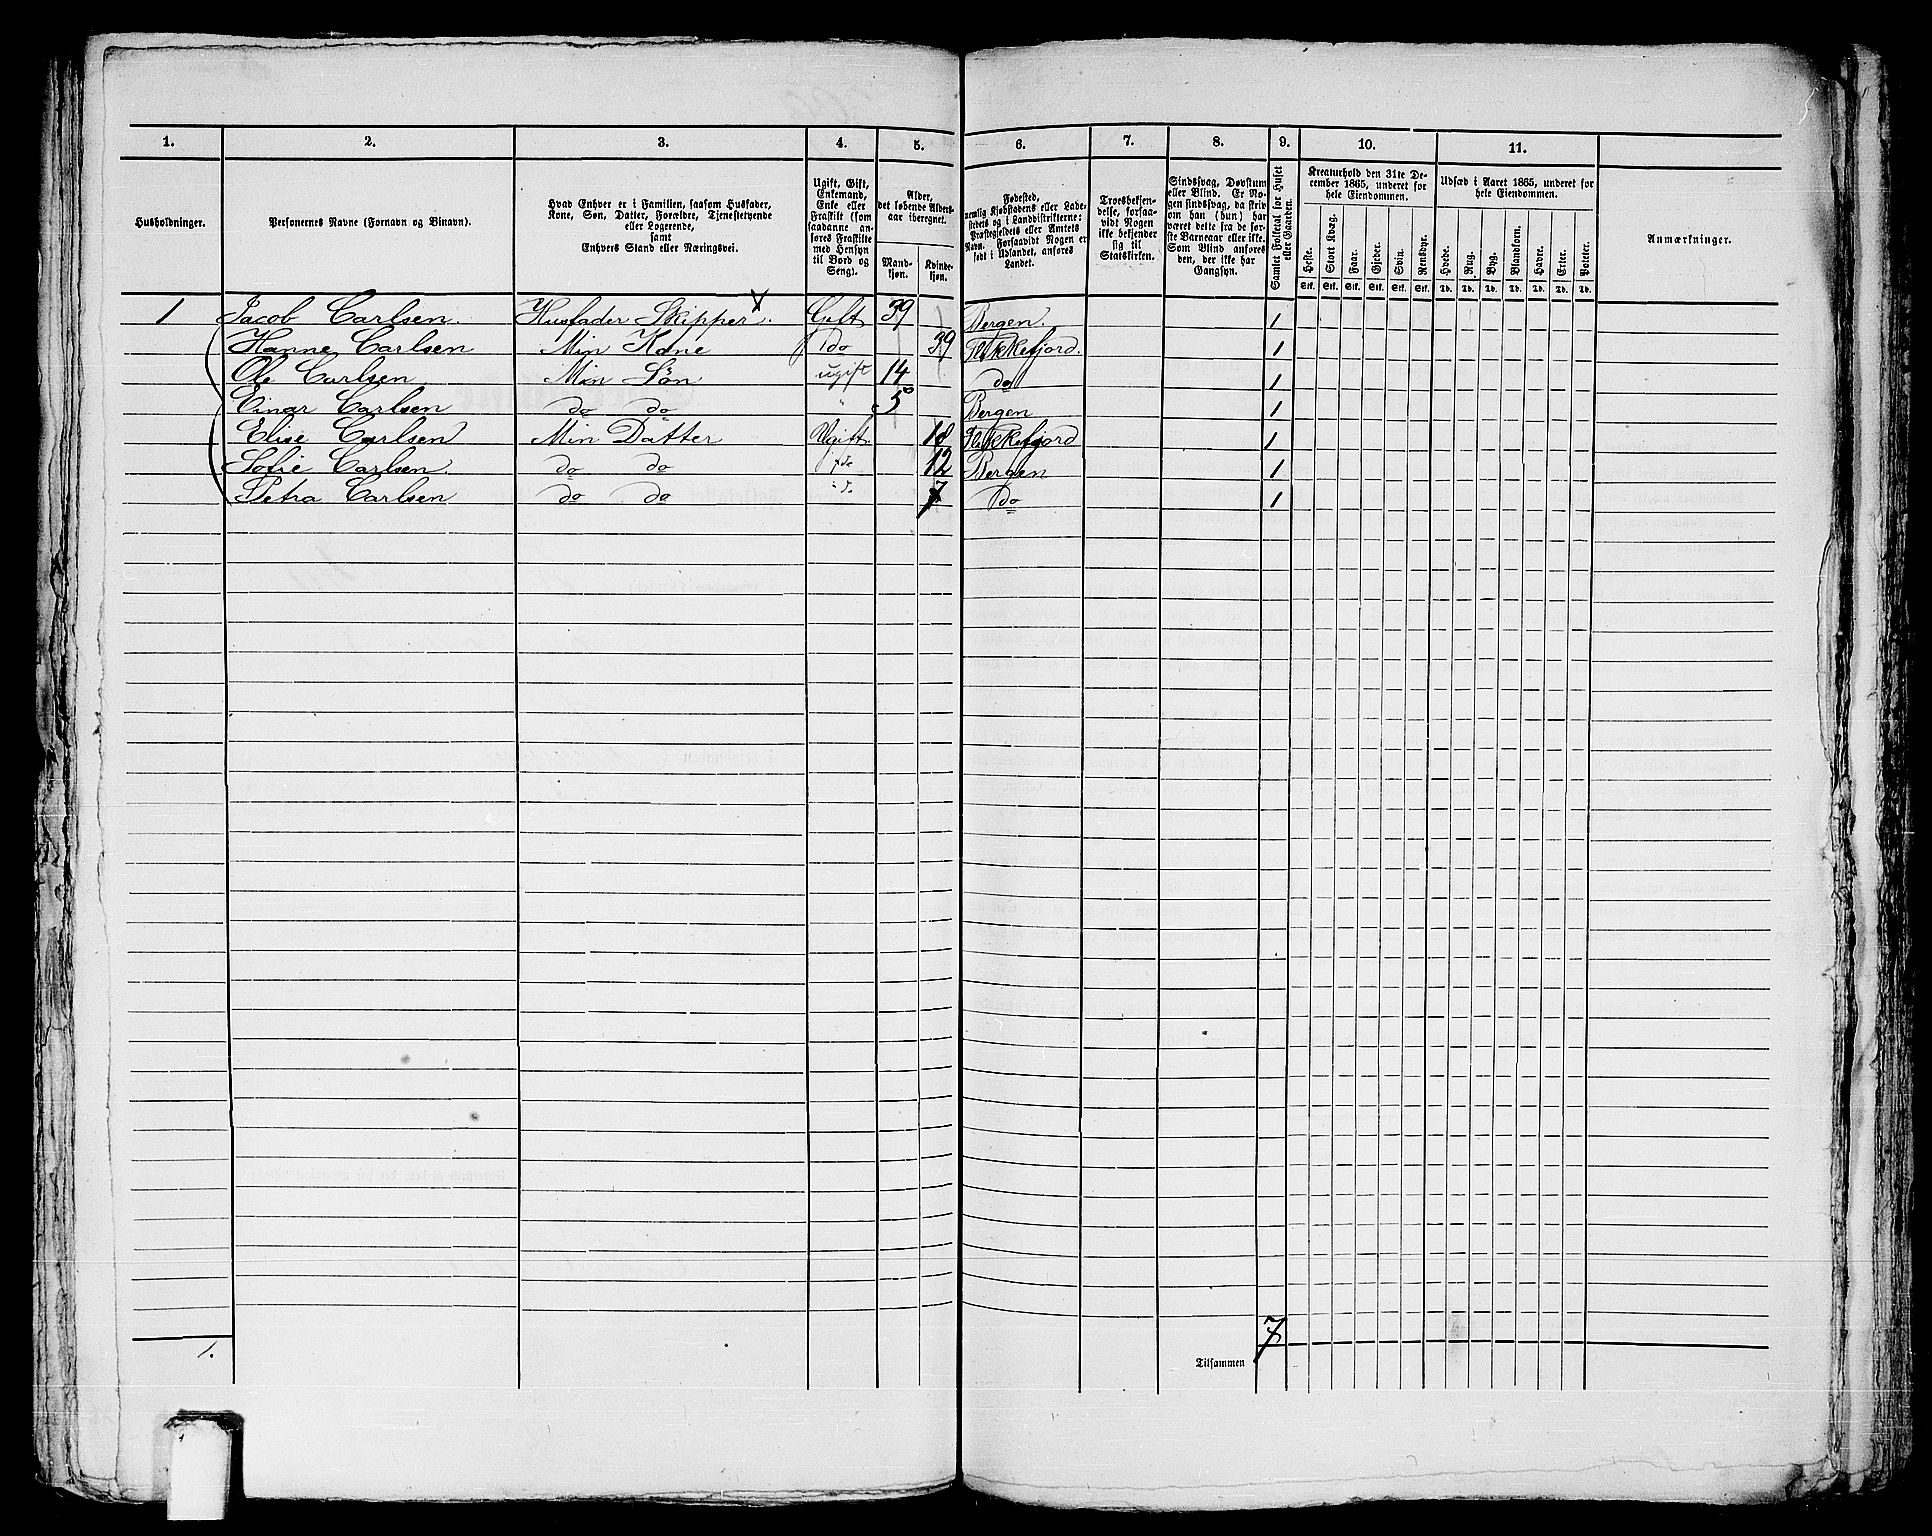 1. 2. 3. 4. 5. 6. 7. 8. 9. 10. 11.
Husholdninger.
Personernes Navne (Fornavn og Binavn).
Hvad Enhver er i Familien, saasom Husfader,
Kone, Søn, Datter, Forældre, Tjenestetyende
eller Logerende,
samt
Enhvers Stand eller Næringsvei.
Ugift, Gift,
Enkemand,
Enke eller
Fraskilt (som
saadanne an-
føres Fraskilte
med Hensyn
til Bord og
Seng).
Alder,
det løbende Alders-
aar iberegnet.
Mand-
kjøn.
Kvinde-
kjøn.
Fødested,
nemlig Kjøbstadens eller Lade-
stedets og i Landdistrikterne:
Præstegjeldets eller Amtets
Navn. Forsaavidt Nogen er
født i Udlandet, anføres
Landet.
Troesbekjen-
delse, forsaa-
vidt Nogen
ikke bekjender
sig til
Statskirken.
Sindssvag, Døvstum
eller Blind. Er No-
gen sindssvag, da skriv
om han (hun) har
været dette fra de før-
ste Barneaar eller ikke.
Som Blind anføres
den, der ikke har
Gangsyn.
Samlet Folketal for Huset
eller Gaarden.
Kreaturhold den 31te De-
cember 1865, underet for
hele Eiendommen.
Heste. Stort Kvæg. Faar. Gjeder. Svin. Rensdyr.
Stk. Stk. Stk. Stk. Stk. Stk.
Udsæd i Aaret 1865, underet for
hele Eiendommen.
Hvede. Rug. Byg. Blandkorn. Havre. Erter. Poteter.
Td. Td. Td. Td. Td. Td. Td.
Anmærkninger.
1 Jacob Carlsen. Husfader Skipper. X Gift 39 Bergen. 1
Hanne Carlsen Min Kone Do 39 Flekkefjord. 1
Ole Carlsen Min Søn ugift 14 do 1
Einar Carlsen do do " 5 Bergen 1
Elise Carlsen Min Datter Ugift. 18 Flekkefjord 1
Sofie Carlsen. do do do 12 Bergen 1
Petra Carlsen do do do 7 Do 1
1.
Tilsammen 7